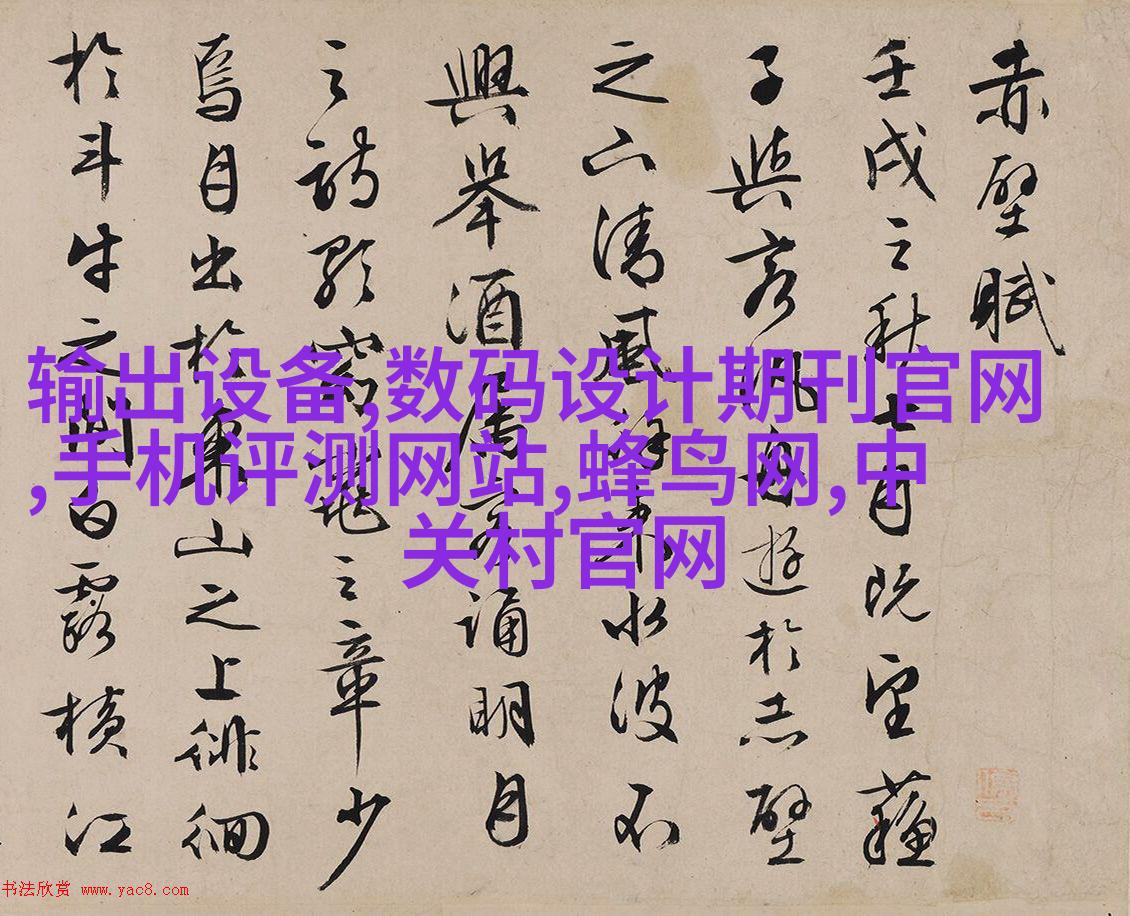 赤壁賦
壬戌之秋七月既望蘓
子與客汎舟遊於赤壁
之下清風徐来水波不
興舉酒属客誦明月
之詩歌窈窕之章少
焉月出於東山之上徘徊
於斗牛之間白露横江
输出设备,数码设计期刊官网
,手机评测网站,蜂鸟网,中
关村官网
书法欣赏 www.yac8.com